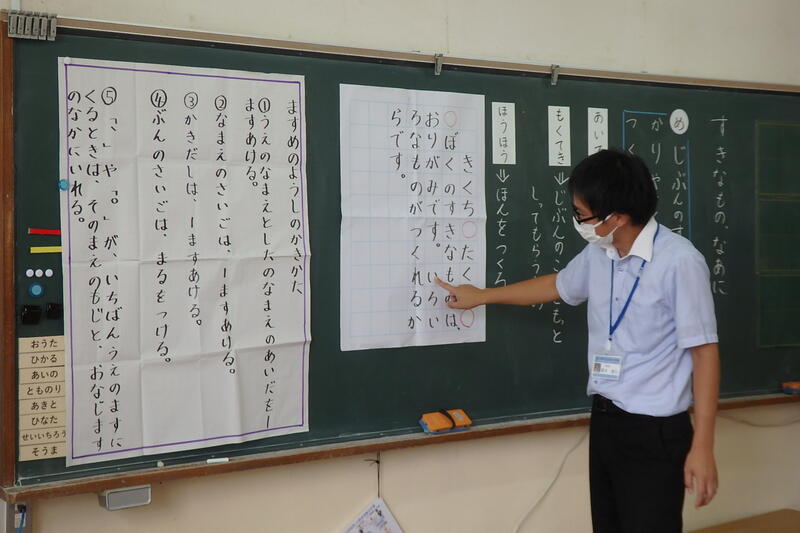 すきなもの、なあに
め
じぶんのす
かりや
つく
あいて
もくてき
⇓じぶんのことをもっと
しってもらう
ほうほう
⇓ほんをつくろ
きくち○たく
○ぼくのすきなものは、
おりがみです。いろい
ろなものがつくれるか
らです。
ますめのようしのかきかた
①うえのなまえとしたのなまえのあいだを一
ますあける。
②なまえのさいごは、一ますあける。
③かきだしは、一ますあける。
④ぶんのさいごは、まるをつける。
⑤「、」や「。」が、いちばんうえのますに
くるときは、そのまえのもじと、おなじます
のなかにいれる。
おうた
ひかる
あいの
とものり
あきと
ひなた
せいいちろう
そうま